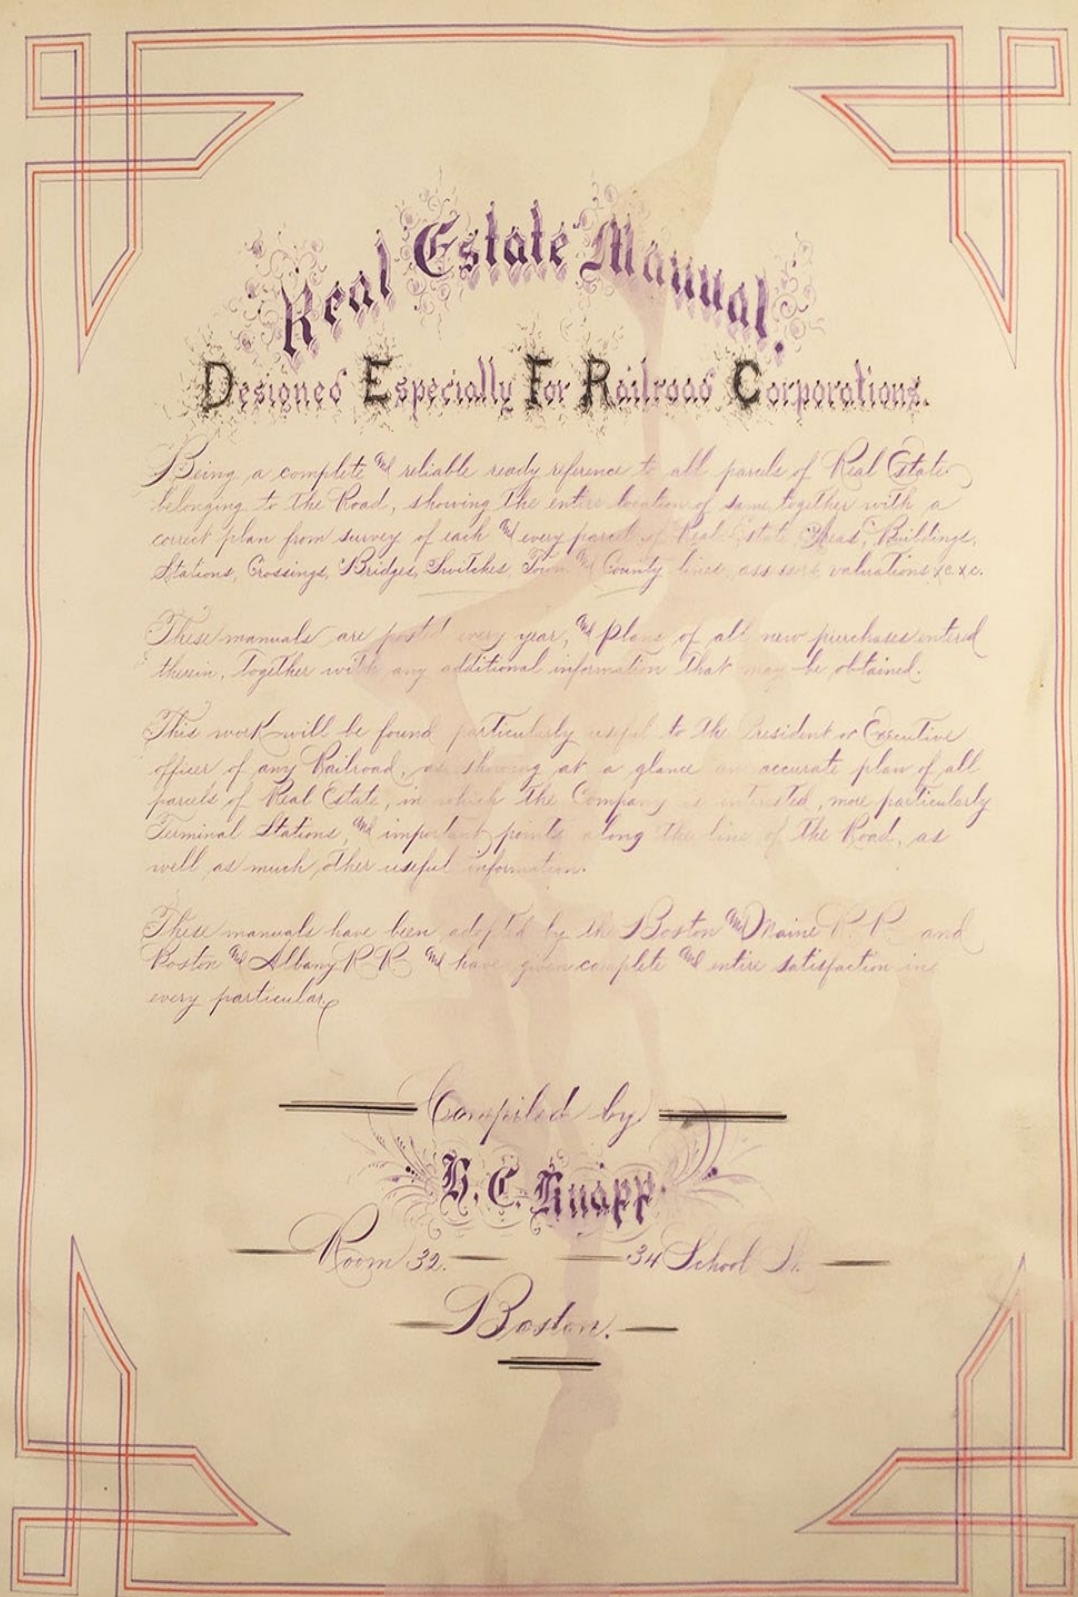 Real Estate Manual.
Designed Especially For Railroad Corporations.
Being a complete and reliable ready reference to all parcels of Real Estate
belonging to the Road, showing the entire location of same together with a
correct plan from survey of each and every parcel of Real Estate, Areas, Buildings,
Stations, Crossings, Bridges, Switches, Town and County lines, assessors valuations &c. &c.
These manuals are posted every year, and plans of all new purchases entered
therein, together with any additional information that may be obtained.
This work will be found particularly useful to the President or Executive
officer of any Railroad, as showing at a glance an accurate plan of all
parcels of Real Estate, in which the Company is intrusted, more particularly
Terminal Stations, and important points along the line of the Road, as
well as much other useful information.
These manuals have been adopted by the Boston and Maine R.R. and
Boston and Albany R R and have given complete and entire satisfaction in
every particular.
Compiled by
H. C. Knapp
Room 32. 34 School St.
Boston.